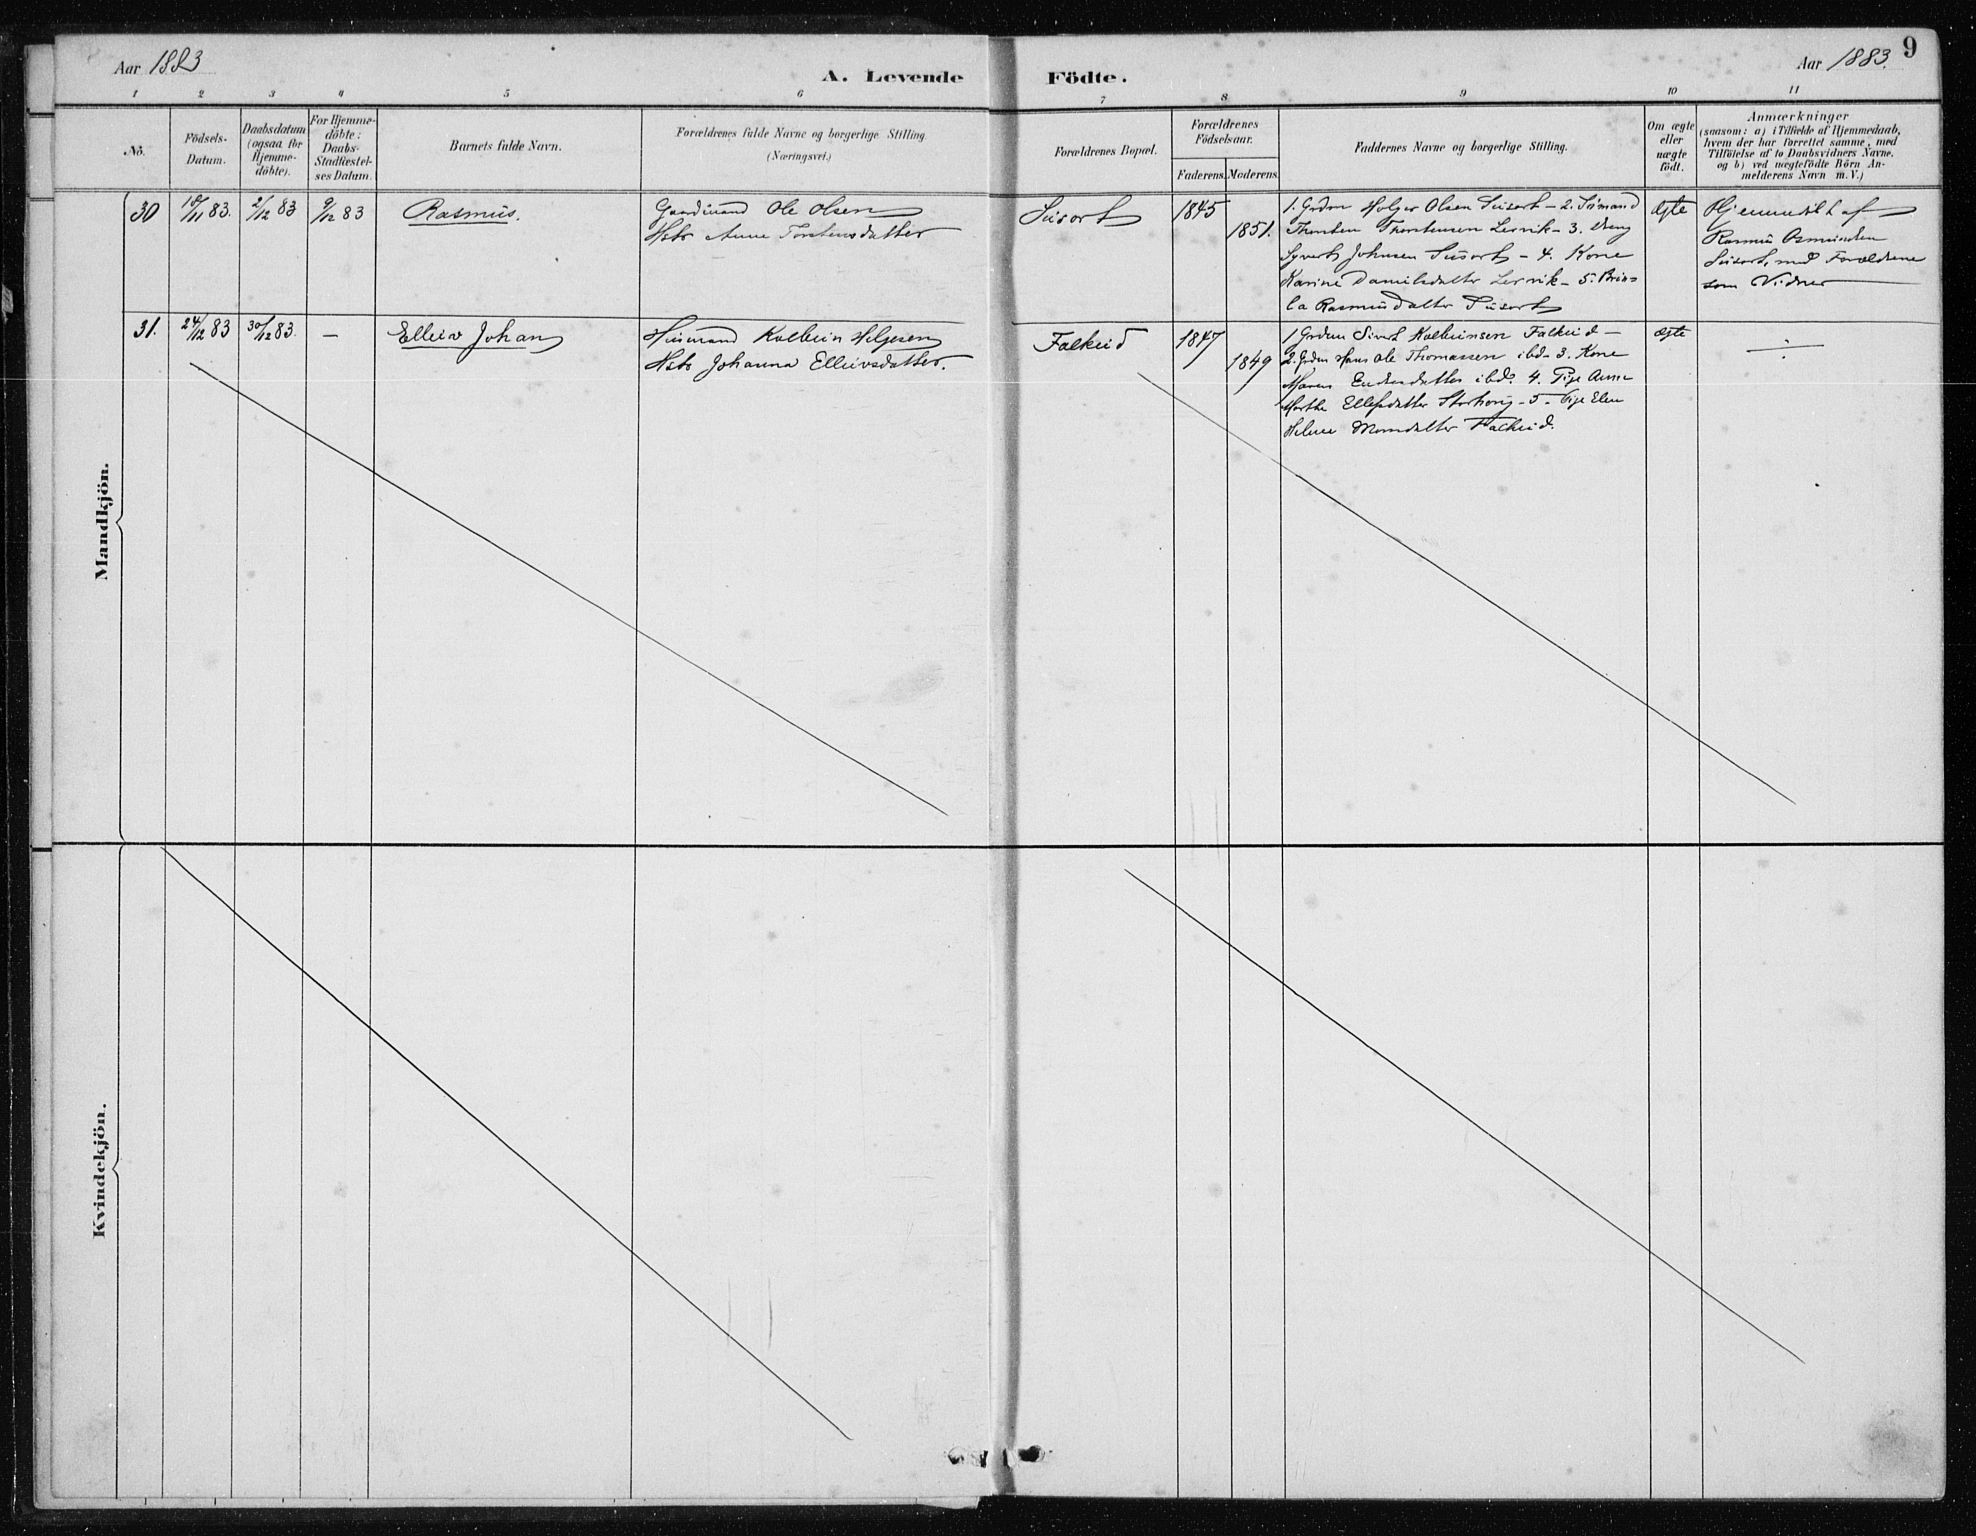 Aar 1883
A. Levende Födte.
Aar 1883.
9
1 2 3 4 5 6 7 8 9 10 11
No.
Födsels-
Datum.
Daabsdatum
(ogsaa for
Hjemme-
döbte).
For Hjemme-
döbte:
Daabs-
Stadfæstel-
ses Datum.
Barnets fulde Navn.
Forældrenes fulde Navne og borgerlige Stilling.
(Næringsvei.)
Forældrenes Bopæl.
Forældrenes
Födselsaar.
Faderens. Moderens.
Faddernes Navne og borgerlige Stilling.
Om ægte
eller
uægte
födt.
Anmærkninger
(saasom: a) i Tilfælde af Hjemmedaab,
hvem der har forrettet samme, med
Tilföielse af to Daabsvidners Navne,
og b) ved uægtefödte Börn An-
melderens Navn m. V.)
Mandkjön.
30
18/11 83.
2/12 83
9/12 83
Rasmus.
Gaardmand Ole Olsen
Hstr Anne Torstensdatter
Susort
1845
1851.
1. Grdm Holger Olsen Susort - 2.
Thorsten Thorstensen Lervik - 3. Dreng
Syvert Johnsen Susort - 4. Kone
Karine Danielsdatter Lervik - 5.
Rasmusdatter Susort
ægte
Hjemmedøbt af
Rasmus Osmundsen
Susort, med Forældrene
som Vidner
31.
24/12 83
30/12 83.
-
Elleiv Johan
Husmand Kolbein Helgesen
Hstr Johanna Elleivsdatter.
Falkeid
1847
1849
1 Grdm Sivert Kolbeinsen Falkeid -
2. Grdm Hans Ole Thomassen ibd - 3. Kone
Maren Endresdatter ibd. 4. Pige Anne
Marthe Ellefsdatter - 5. Pige Elen
Helene Falkeid.
ægte
÷
Kvindekjön.